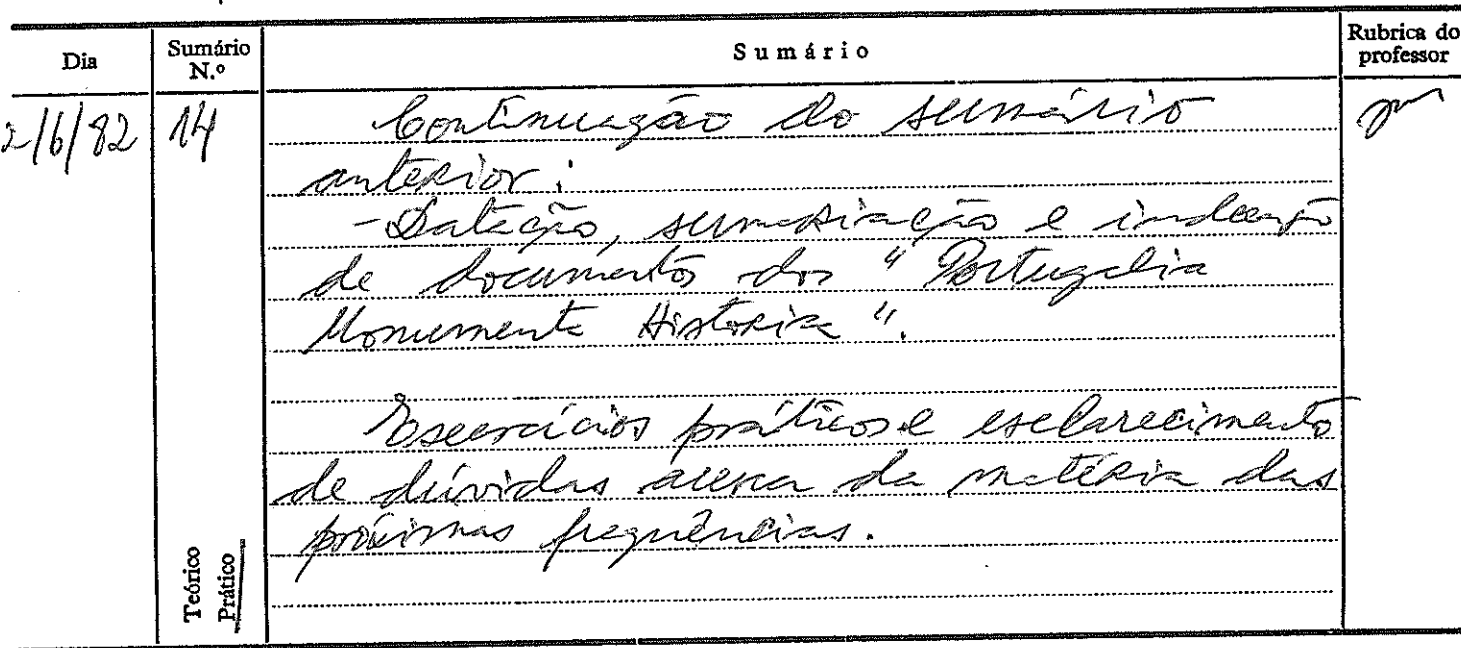 Dia
Sumário
N.º
Sumário
Rubrica do
professor
2/6/82
14
Continuação do sumário
anterior:
- Datação, sumariação e indexação
de documentos dos "Portugalia
Monumenta Historica".
Exercícios práticos e esclarecimento
de dúvidas acerca da matéria das
próximas frequências.
Teórico
Prático